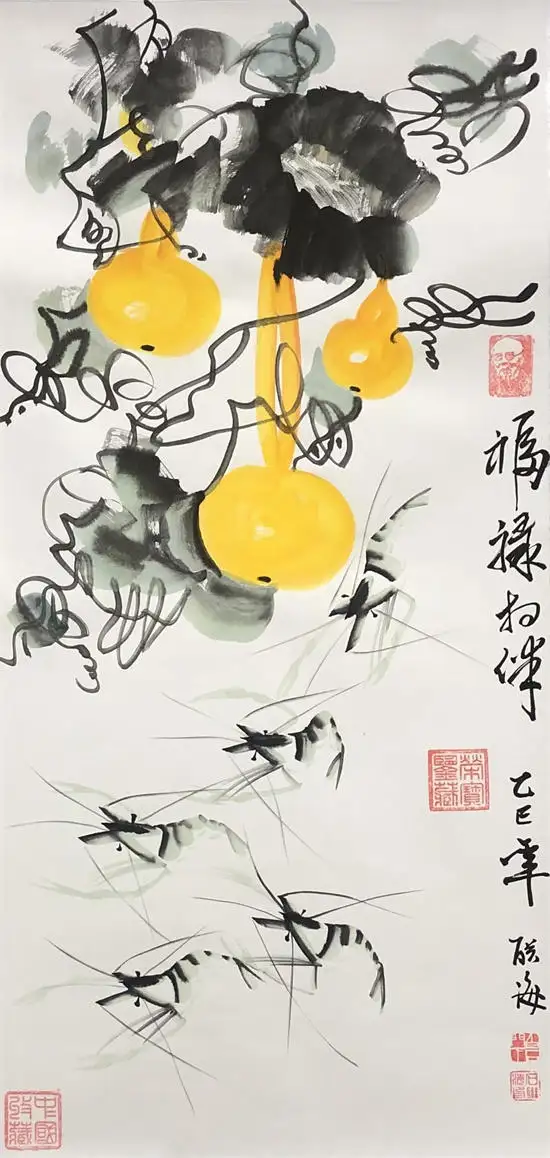 福禄相伴
乙巳年
联海
荣宝
鉴藏
中国
收藏